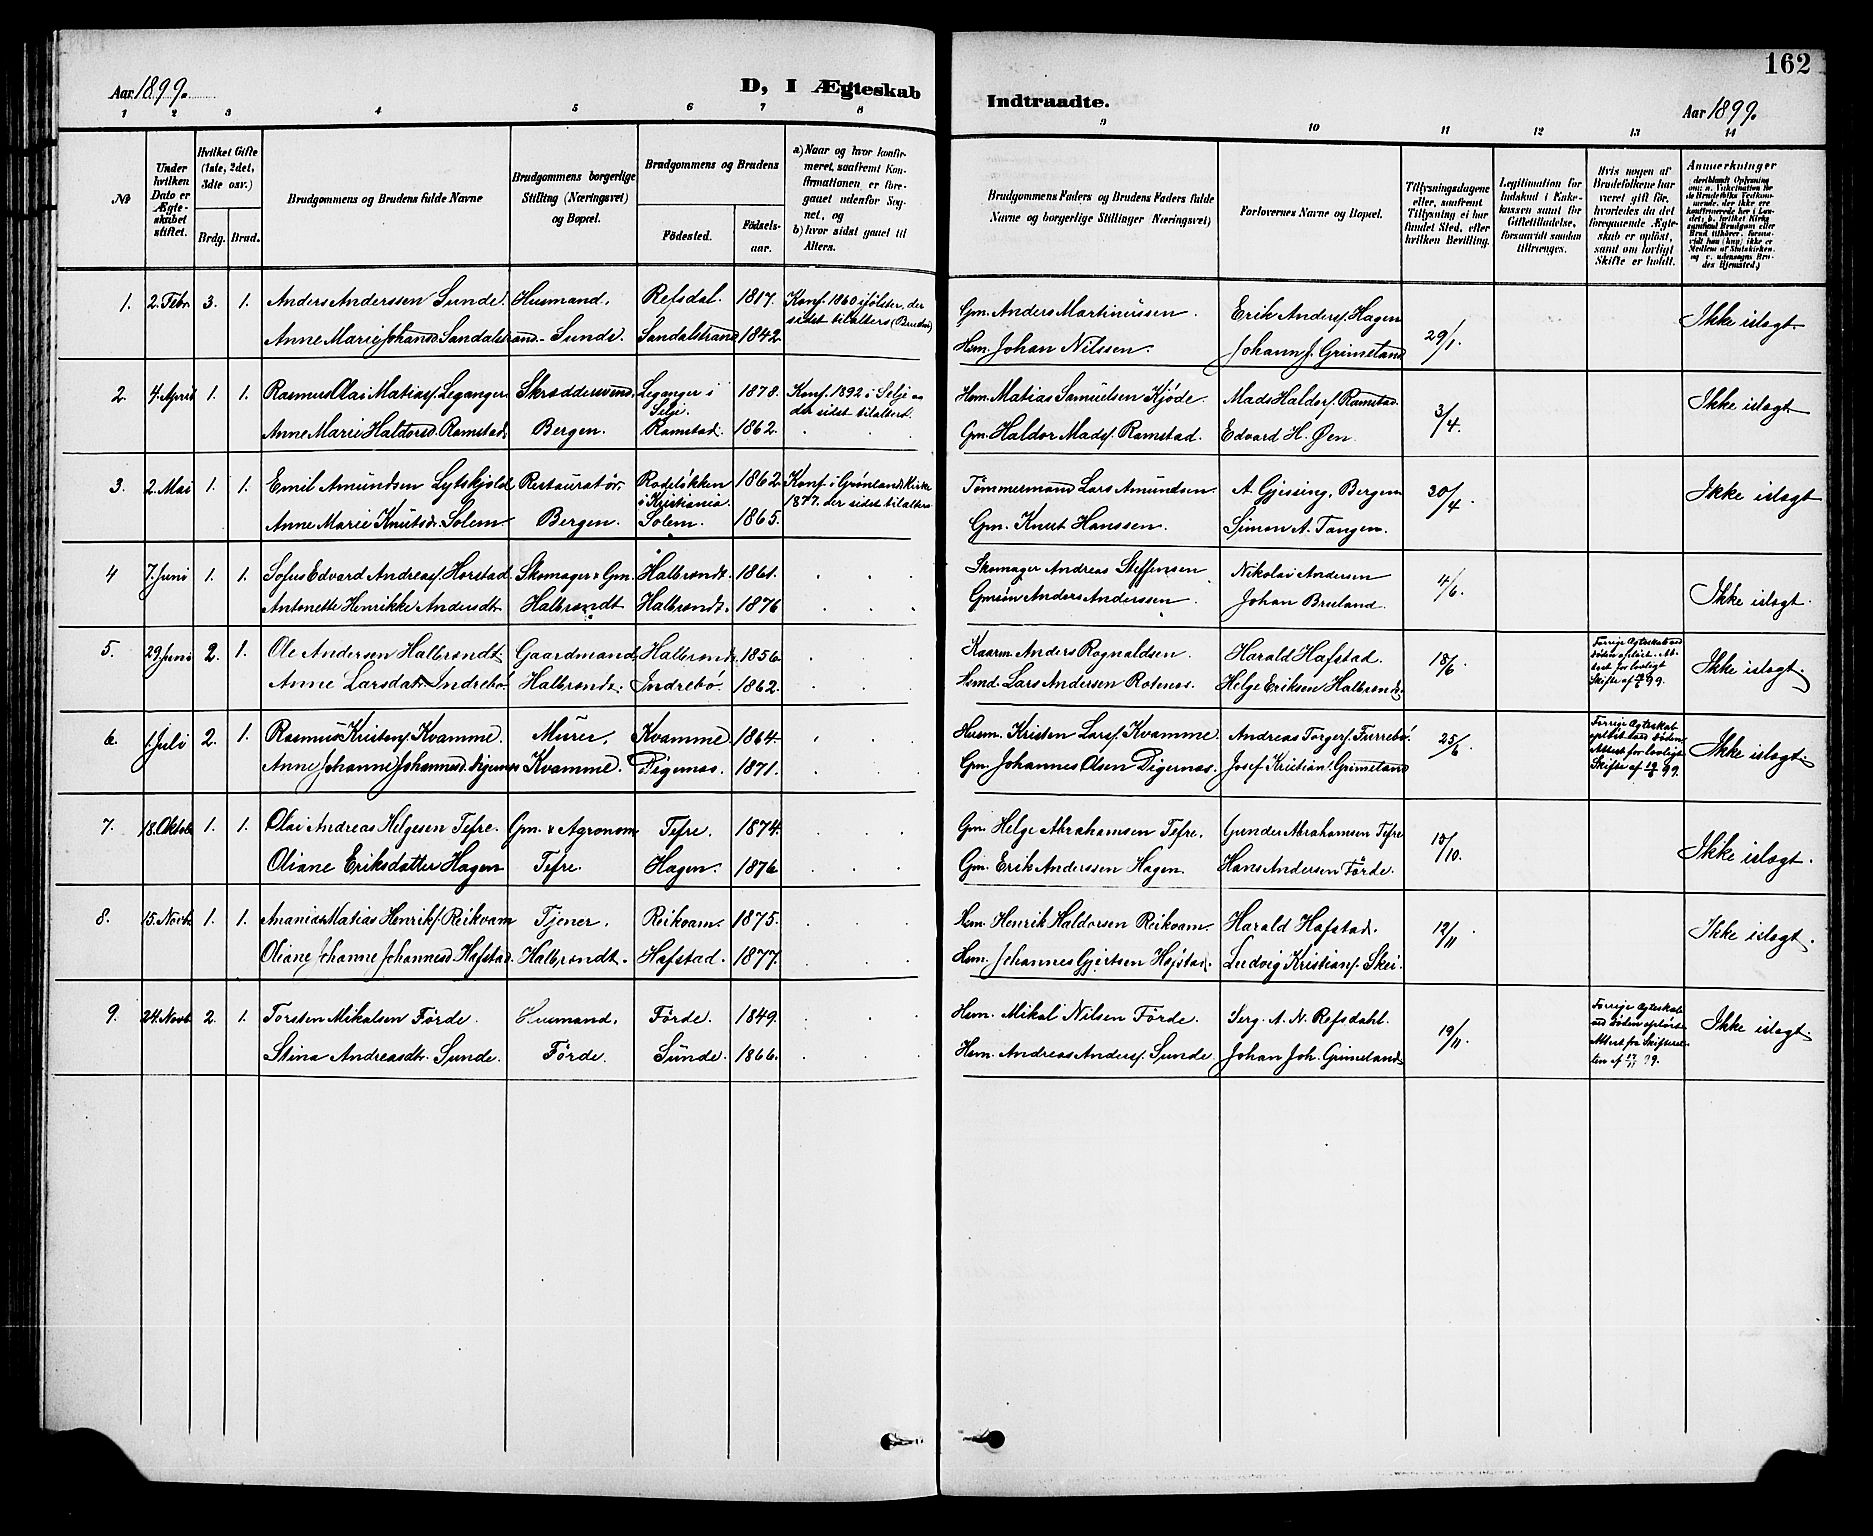 162
Aar 1899.
D, I Ægteskab
Indtraadte.
Aar 1899.
1 2 3 4 5 6 7 8
9 10 11 12 13 14
No
Under hvilken Dato er Ægteskabet stiftet.
Hvilket Gifte (1ste, 2det, 3dte osv.)
Brdg. Brud.
Brudgommens og Brudens fulde Navne
Brudgommens borgerlige Stilling (Næringsvei) og Bopæl.
Brudgommens og Brudens
Fødested.
Fødselsaar.
a) Naar og hvor konfirmeret, saafremt Konfirmationen er foregaaet udenfor Sognet, og
b) hvor sidst gaaet til Alters.
Brudgommens Faders og Brudens Faders fulde Navne og borgerlige Stillinger (Næringsvei)
Forlovernes Navne og Bopæl.
Tillysningsdagene eller, saafremt Tillysning ei har fundet Sted, efter hvilken Bevilling.
Legitimation for Indskud i Enkekassen samt for Giftetilladelse, forsaavidt saadan tiltrænges.
Hvis nogen af Brudefolkene har været gift før, hvorledes da det foregaaende Ægteskab er opløst, samt om lovligt Skifte er holdt.
Anmerkninger
1. 2. Febr. 3. 1. Anders Anderssen Sunde. Husmand. Refsdal. 1817. Konf. 1860 i Jølster, der
sidst tilalters (Bruden)
Anne Marie Johansd. Sandalstrand. Sunde. Sandalstrand 1842.
Gm. Anders Martinussen. Erik Anders. Hagen
Hsm. Johan Nilssen. Johann J. Grimeland 29/1. Ikke islægt
2. 4. April 1. 1. Rasmus Olai Matias. Leganger Skræddersvend. Leganger i Selje. 1878. Konf. 1892 i Selje
der sidst tilalters.
Anne Marie Haldorsd. Ramstad. Bergen. Ramstad. 1862.
Hsm. Matias Samuelsen Kjøde. Mads Haldors. Ramstad.
Gm. Haldor Mads. Ramstad. Edvard H. Øen. 3/4. Ikke islægt
3. 2. Mai 1. 1. Emil Amundsen Lytskjold Restauratør. Rodeløkken i Kristiania. 1862. Konf. i Grønlands Kirke
1877. der sidst tilalters.
Anne Marie Knutsd. Solem. Bergen. Solem. 1865.
Tømmermand Lars Amundsen. A. Gjessing, Bergen
Gm. Knut Hanssen. Simon A. Tangen. 30/4. Ikke islægt
4 7. Juni 1. 1. Sofus Edvard Andreas. Horstad. Skomager & Gm. Halbrendt. 1861.
Antonette Henrikke Andersdt. Halbrendt Halbrendt. 1876
Skomager Andreas Steffensen Nikolai Andersen
Gm. Anders Anderssen. Johan Bruland. 4/6. Ikke islægt.
5. 29. Juni 2. 1. Ole Andersen Halbrendt Gaardmand Halbrendt. 1856.
Anne Larsdat. Indrebø. Halbrendt. Indrebø. 1862.
Kaarm. Anders Ragnaldsen. Harald Hafstad.
Hsmd. Lars Andersen Rotenes. Helge Eriksen Halbrendt. 18/6. Forrige Ægteskab ved
Døden opløst. Attest for lovligt
Skifte af 99. Ikke islægt.
6. 1. Juli 2. 1. Rasmus Kristens. Kvamme. Murer. Kvamme 1864.
Anne Johanne Johannesd. Digernes Kvamme. Digernes. 1871.
Husm. Kristen Lars. Kvamme. Andreas Torgers. Furrebø.
Gm. Johannes Olsen Digernes. Josef Kristian. Grimeland 25/6. Forrige Ægteskab
opløst ved Døden
Attest for lovligt
Skifte af 99. Ikke islægt.
7. 18. Oktob. 1. 1. Olai Andreas Helgesen Tefre. Gm. & Agronom Tefre. 1874.
Oliane Eriksdatter Hagen Tefre. Hagen. 1876
Gm. Helge Abrahamsen Tefre. Gunder Abrahamsen Tefre
Gm. Erik Anderssen Hagen. Hans Andersen Førde. 15/10. Ikke islægt.
8. 15. Novb. 1. 1. Ananias Matias Henriks. Reikvam Tjener. Reikvam. 1875.
Oliane Johanne Johannesd. Hafstad. Halbrendt. Hafstad. 1877.
Hsm. Henrik Haldorsen Reikvam. Harald Hafstad.
Hsm. Johannes Gjertsen Hafstad. Ludvig Kristians. Skei. 12/11. Ikke islægt.
9. 24. Novb. 2. 1. Torsten Mikalsen Førde. Husmand. Førde. 1849.
Stina Andreasdt. Sunde. Førde. Sunde. 1866.
Hsm. Mikal Nilsen Førde. Serg. A. N. Refsdahl.
Hsm. Andreas Anders. Sunde. Johan Joh. Grimeland 19/11. Forrige Ægteskab
ved Døden opløst.
Attest fra Skifteretten
af 17/11 99. Ikke islægt.